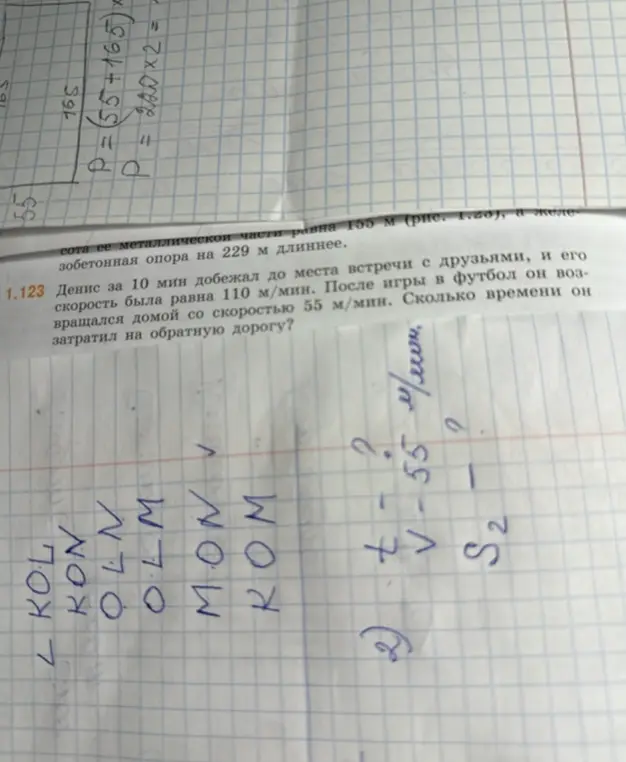 165
165
55
P = (55+165) ×
P = 220 × 2 =
сота ее металлической части равна 155 м (рис. 1.23), а желе-
зобетонная опора на 229 м длиннее.
1.123 Денис за 10 мин добежал до места встречи с друзьями, и его
скорость была равна 110 м/мин. После игры в футбол он воз-
вращался домой со скоростью 55 м/мин. Сколько времени он
затратил на обратную дорогу?
∠ KOL
KON
OLN
OLM
MON ✓
KOM
2) t - ?
V - 55 м/мин.
S₂ - ?